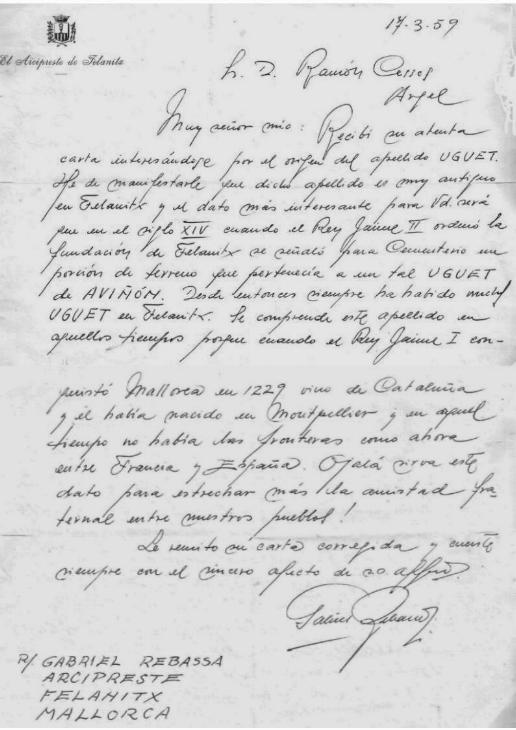 17-3-59
El Arcipreste de Felanitx
Sr. D. Ramón
Argel
Muy señor mio: Recibí su atenta
carta interesándose por el origen del apellido UGUET.
He de manifestarle que dicho apellido es muy antiguo
en Felanitx y el dato más interesante para Vd. será
que en el siglo XIV cuando el Rey Jaime II ordenó la
fundación de Felanitx se señaló para Cementerio un
porción de terreno que pertenecía a un tal UGUET
de AVIÑÓN. Desde entonces siempre ha habido
UGUET en Felanitx. Se comprende este apellido en
aquellos tiempos porque cuando el Rey Jaime I con-
quistó Mallorca en 1229 vino de Cataluña
y él había nacido en Montpellier y en aquel
tiempo no había las fronteras como ahora
entre Francia y España. Ojalá sirva este
dato para estrechar más la amistad fra-
ternal entre nuestros pueblos!
Le remito su carta corregida y cuente
siempre con el sincero afecto de
R/ GABRIEL REBASSA
ARCIPRESTE
FELANITX
MALLORCA